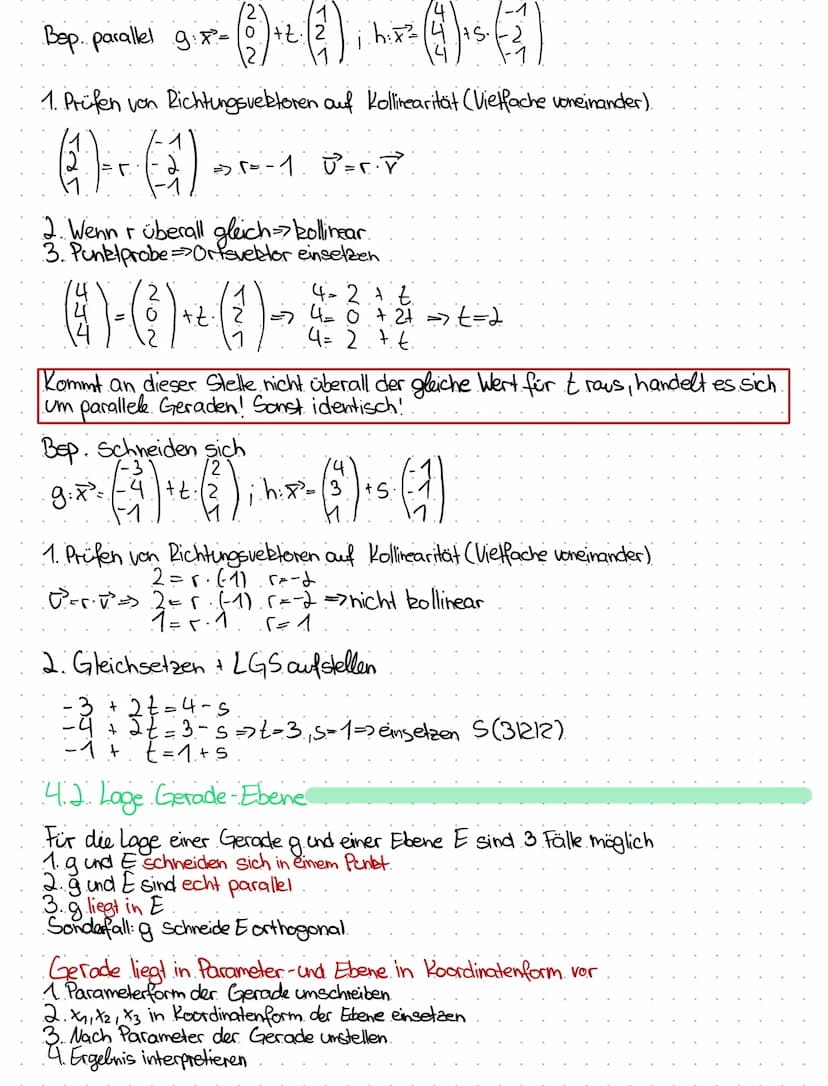 Bsp. parallel g: x⃗ = (2 0 2) + t · (1 2 1) ; h: x⃗ = (4 4 4) + s · (-1 -2 -1)
1. Prüfen von Richtungsvektoren auf Kollinearität (Vielfache voneinander)
(1 2 1) = r · (-1 -2 -1) ⇒ r = -1 u⃗ = r · v⃗
2. Wenn r überall gleich ⇒ kollinear
3. Punktprobe ⇒ Ortsvektor einsetzen
(4 4 4) = (2 0 2) + t · (1 2 1) ⇒ 4 = 2 + t
4 = 0 + 2t ⇒ t = 2
4 = 2 + t
Kommt an dieser Stelle nicht überall der gleiche Wert für t raus, handelt es sich
um parallele Geraden! Sonst identisch!
Bsp. schneiden sich
g: x⃗ = (-3 -4 -1) + t · (2 2 1) ; h: x⃗ = (4 3 1) + s · (-1 -1 1)
1. Prüfen von Richtungsvektoren auf Kollinearität (Vielfache voneinander)
2 = r · (-1) r = -2
u⃗ = r · v⃗ ⇒ 2 = r · (-1) r = -2 ⇒ nicht kollinear
1 = r · 1 r = 1
2. Gleichsetzen + LGS aufstellen
-3 + 2t = 4 - s
-4 + 2t = 3 - s ⇒ t = 3, s = 1 ⇒ einsetzen S(3|2|2)
-1 + t = 1 + s
4.2. Lage Gerade-Ebene
Für die Lage einer Gerade g und einer Ebene E sind 3 Fälle möglich
1. g und E schneiden sich in einem Punkt
2. g und E sind echt parallel
3. g liegt in E
Sonderfall: g schneide E orthogonal
Gerade liegt in Parameter- und Ebene in Koordinatenform vor
1. Parameterform der Gerade umschreiben
2. x₁, x₂, x₃ in Koordinatenform der Ebene einsetzen
3. Nach Parameter der Gerade umstellen
4. Ergebnis interpretieren